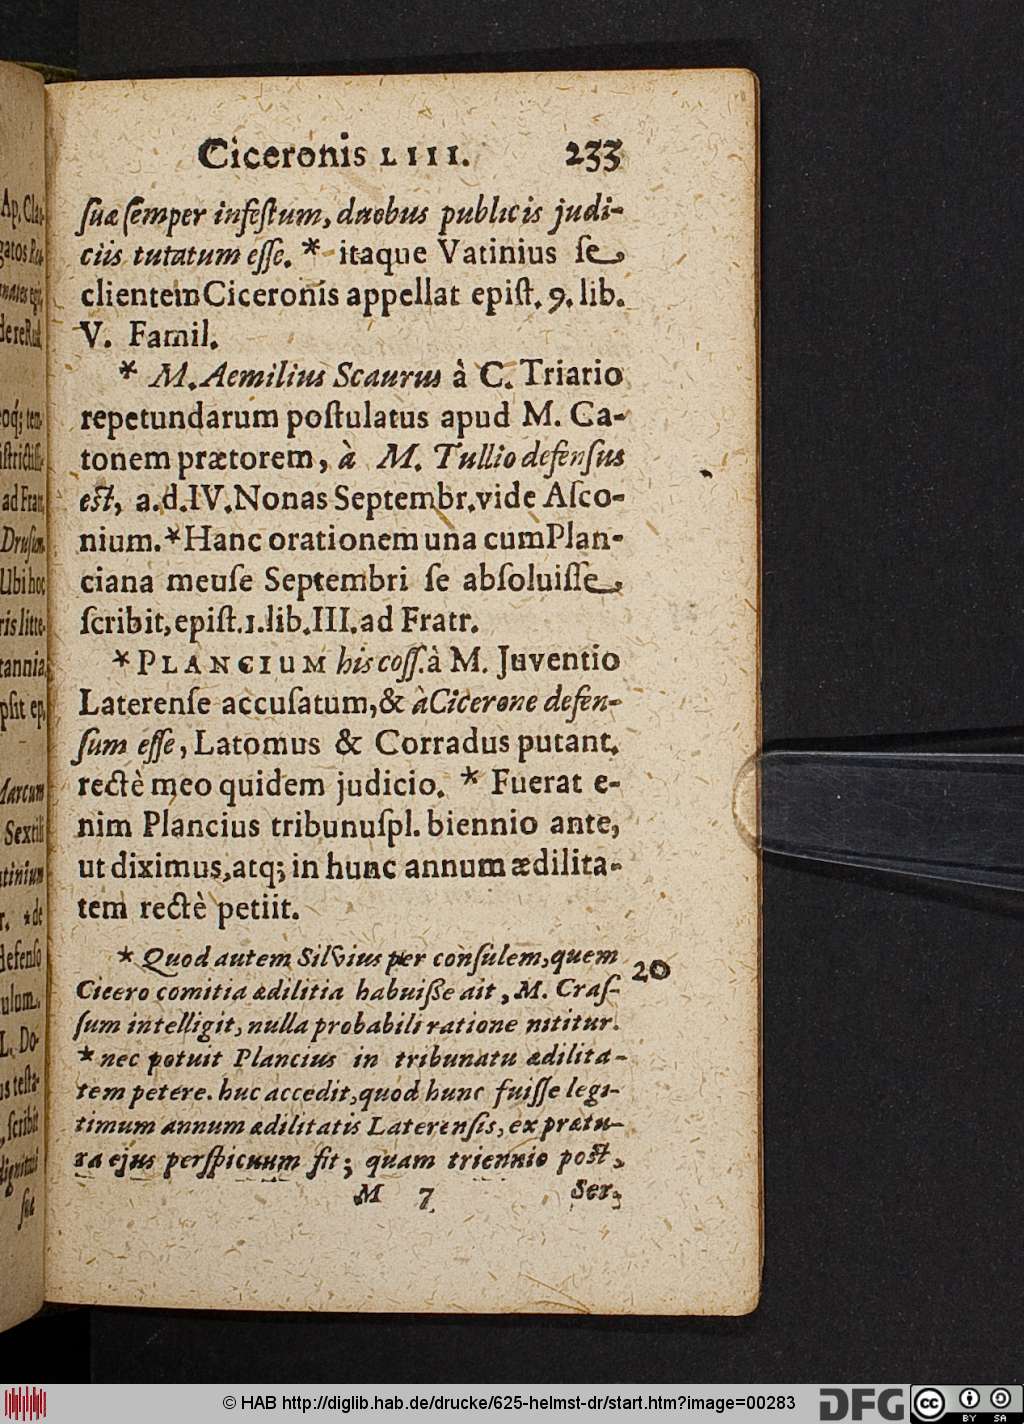 Ciceronis LIII. 233
ſuæ ſemper infeſtum, duobus publicis judi-
ciis tutatum eſſe. * itaque Vatinius ſe
clientem Ciceronis appellat epiſt. 9. lib.
V. Famil.
* M. Aemilius Scaurus à C. Triario
repetundarum poſtulatus apud M. Ca-
tonem prætorem, à M. Tullio defenſus
eſt, a.d.IV.Nonas Septembr.vide Aſco-
nium.*Hanc orationem una cum Plan-
ciana meuſe Septembri ſe abſoluiſſe,
ſcribit, epiſt.1.lib.III.ad Fratr.
* PLANCIUM his coſſ. à M. Juventio
Laterenſe accuſatum, & à Cicerone defen-
ſum eſſe, Latomus & Corradus putant.
rectè meo quidem judicio. * Fuerat e-
nim Plancius tribunuſpl. biennio ante,
ut diximus, atq; in hunc annum ædilita-
tem rectè petiit.
* Quod autem Silvius per conſulem, quem 20
Cicero comitia ædilitia habuiße ait, M. Craſ-
ſum intelligit, nulla probabili ratione nititur.
* nec potuit Plancius in tribunatu ædilita-
tem petere. huc accedit, quod hunc fuiſſe legi-
timum annum ædilitatis Laterenſis, ex prætu-
ra ejus perſpicuum ſit; quam triennio poſt,
M 7 Ser.
© HAB http://diglib.hab.de/drucke/625-helmst-dr/start.htm?image=00283 DFG cc BY SA